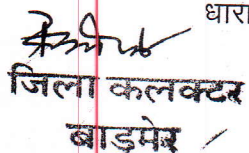 धारा
जिला कलक्टर
बाडमेर